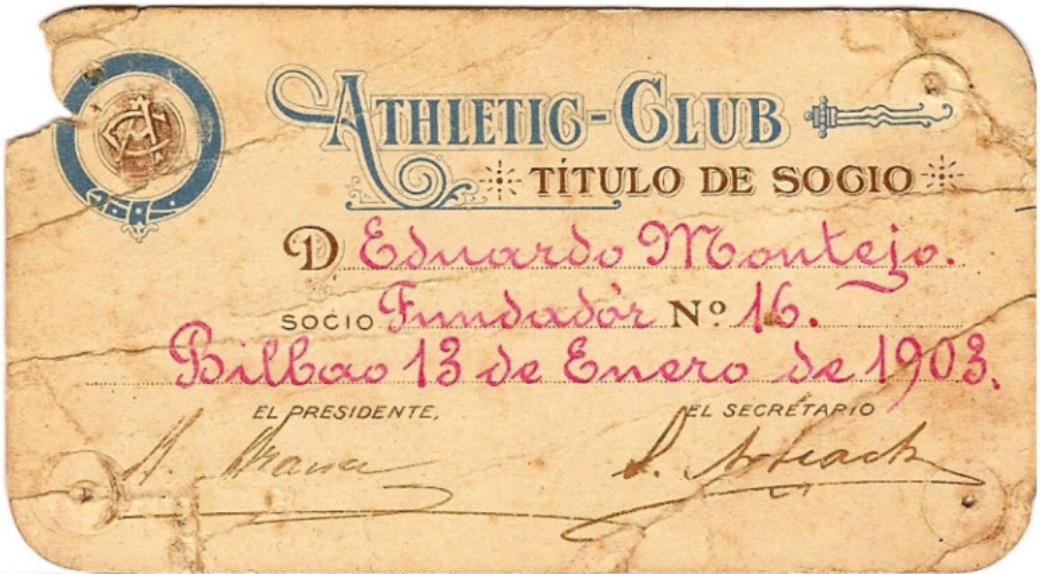 ATHLETIC-CLUB
TÍTULO DE SOCIO
D. Eduardo Montejo.
SOCIO Fundadór Nº 16.
Bilbao 13 de Enero de 1903.
EL PRESIDENTE, EL SECRETARIO
A. Arana